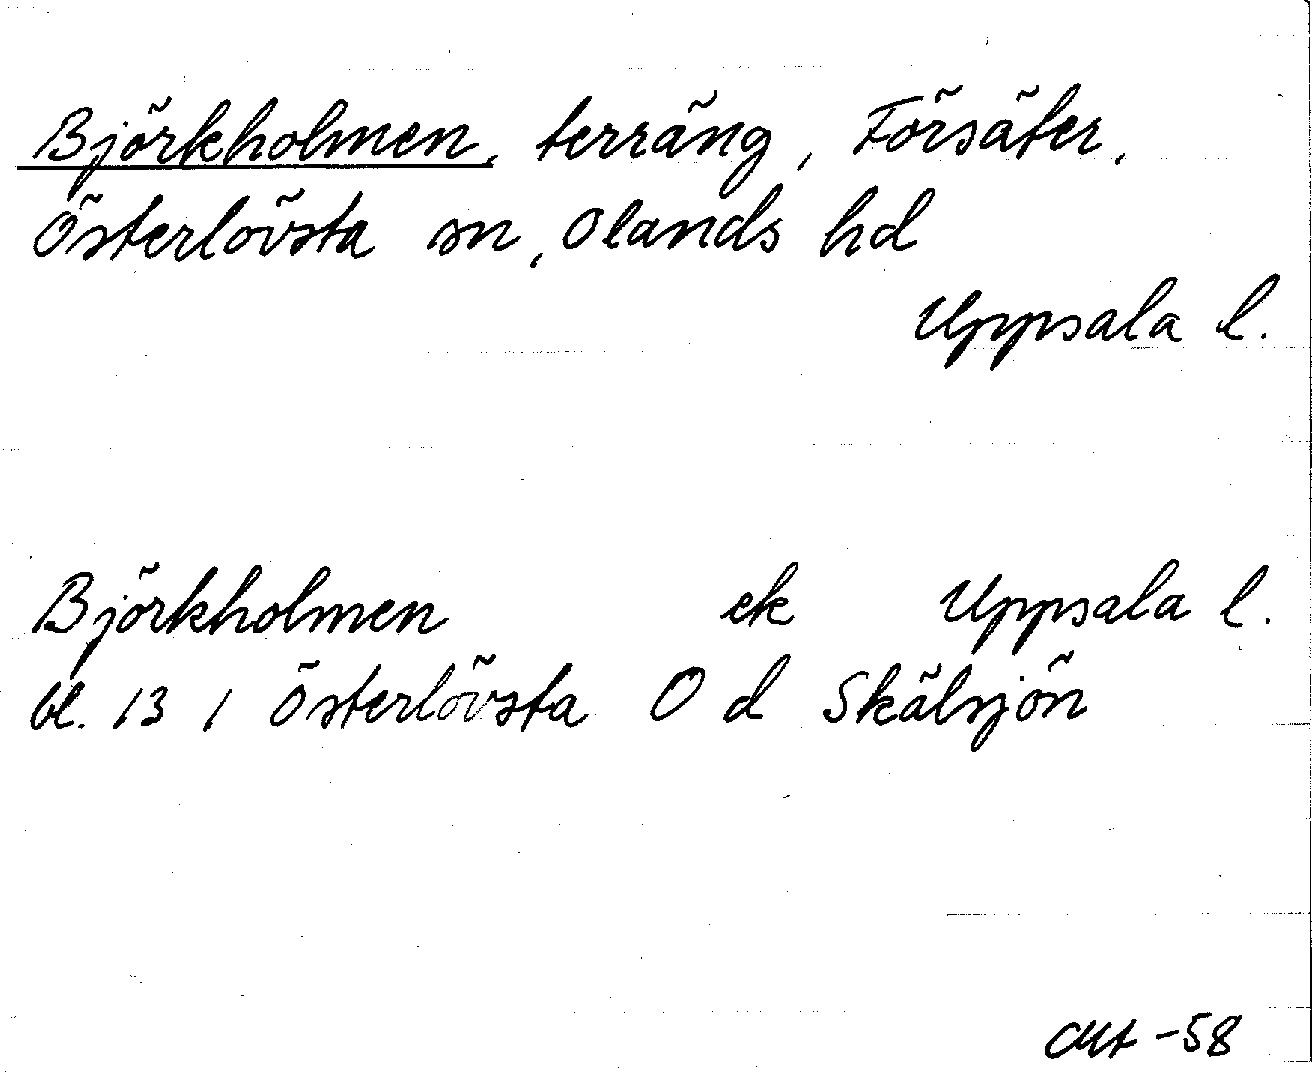 Björkholmen, terräng, Försäter,
Österlövsta sn, Olands hd
Uppsala l.
Björkholmen ek Uppsala l.
bl. 13 1 Österlövsta O d Skälsjön
-58